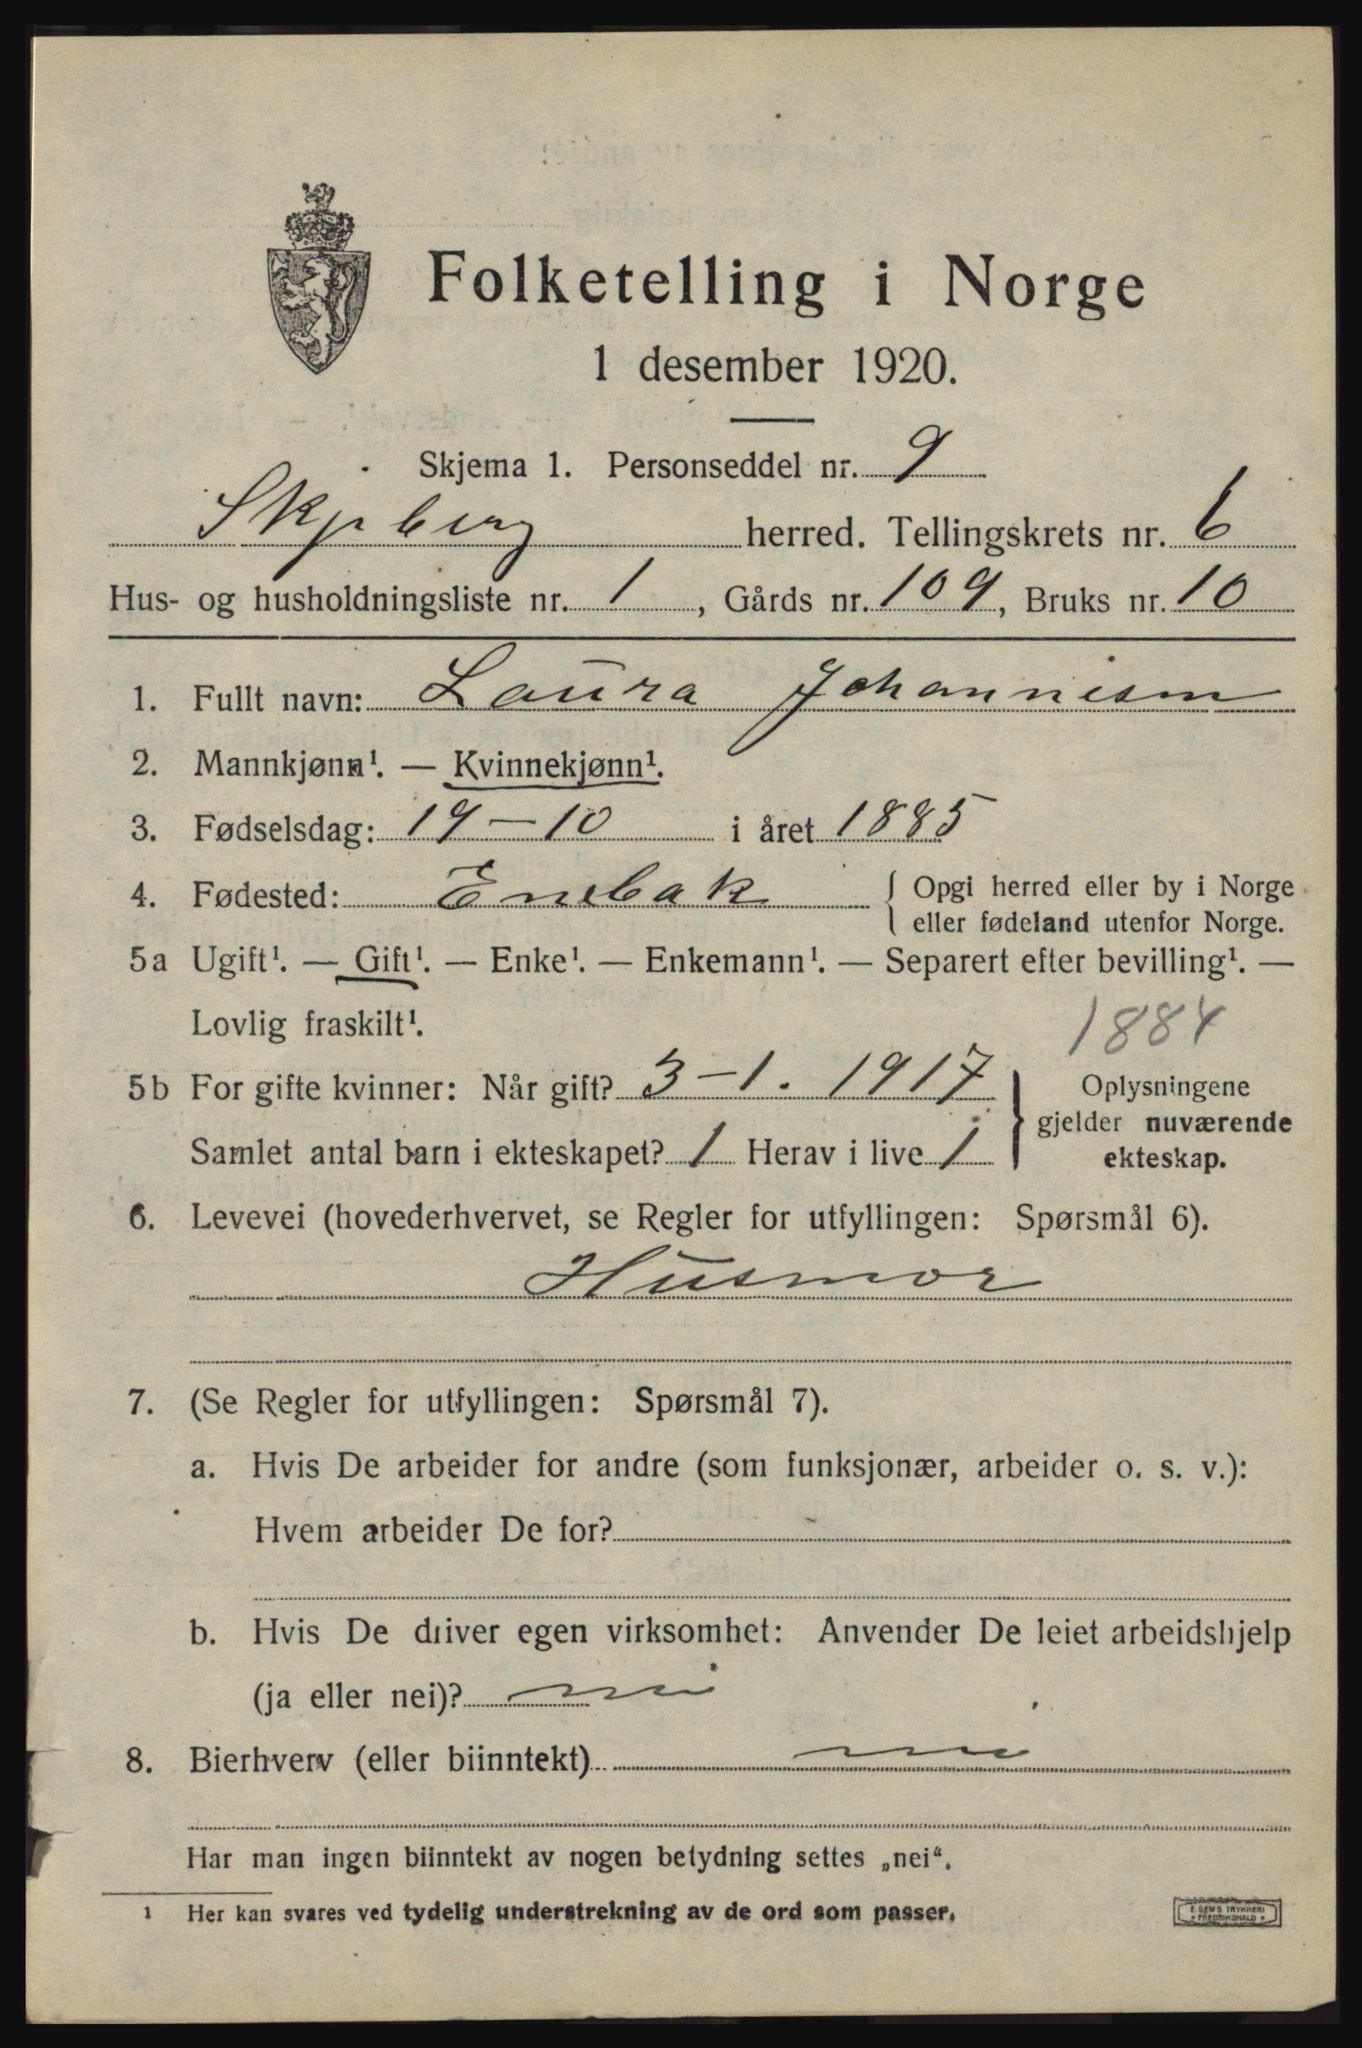 Folketelling i Norge
1 desember 1920.
Skjema 1. Personseddel nr. 9
Skjeberg herred. Tellingskrets nr. 6
Hus- og husholdningsliste nr. 1, Gårds nr. 109, Bruks nr. 10
1. Fullt navn: Laura Johannesen
2. Mannkjønn¹. — Kvinnekjønn¹.
3. Fødselsdag: 19-10 i året 1885
4. Fødested: Enebak { Opgi herred eller by i Norge
eller fødeland utenfor Norge.
5a Ugift¹. — Gift¹. — Enke¹. — Enkemann¹. — Separert efter bevilling¹. —
Lovlig fraskilt¹. 1884
5b For gifte kvinner: Når gift? 3-1. 1917 } Oplysningene
gjelder nuværende
Samlet antal barn i ekteskapet? 1 Herav i live 1 ekteskap.
6. Levevei (hovederhvervet, se Regler for utfyllingen: Spørsmål 6).
Husmor
7. (Se Regler for utfyllingen: Spørsmål 7).
a. Hvis De arbeider for andre (som funksjonær, arbeider o. s. v.):
Hvem arbeider De for?
b. Hvis De driver egen virksomhet: Anvender De leiet arbeidshjelp
(ja eller nei)? nei
8. Bierhverv (eller biinntekt) nei
Har man ingen biinntekt av nogen betydning settes „nei“.
¹ Her kan svares ved tydelig understrekning av de ord som passer.
E. SEM'S TRYKKERI
• FREDRIKSHALD •